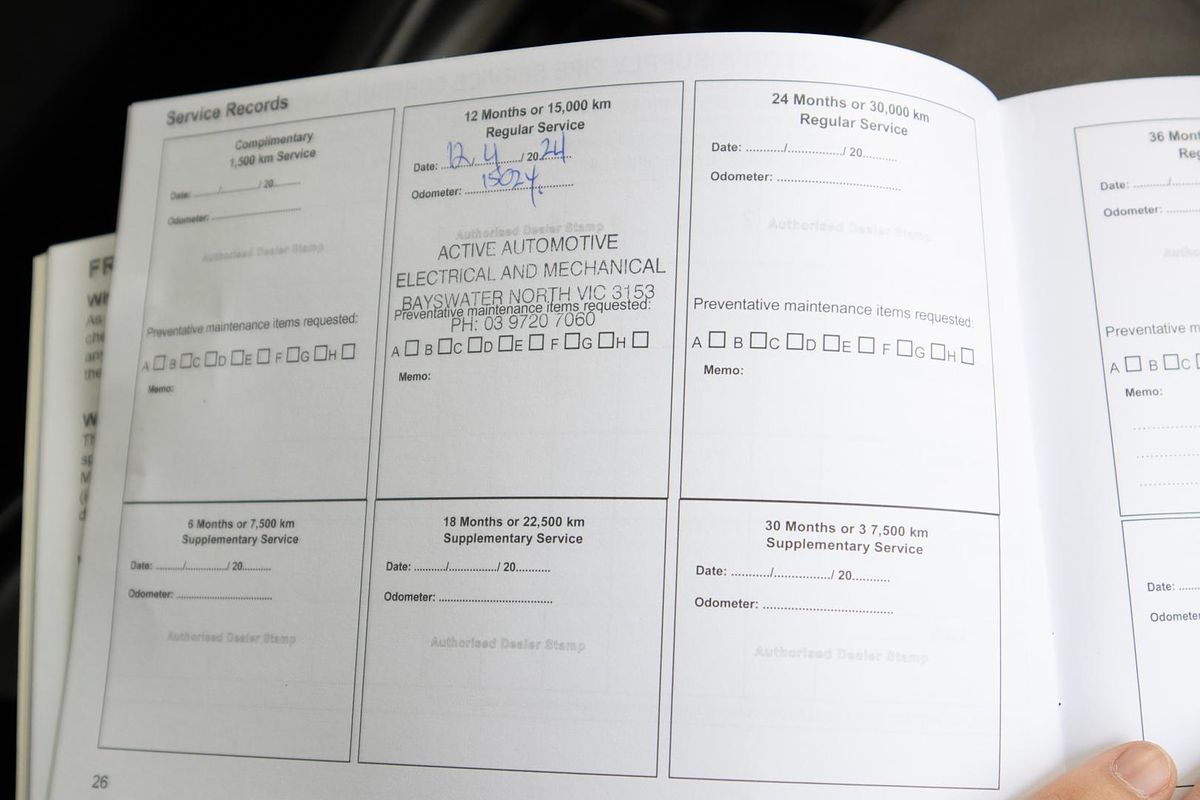 Service Records
Complimentary
1,500 km Service
Date: ........../............/ 20..........
Odometer: ................................
Authorised Dealer Stamp
Preventative maintenance items requested:
A □ B □ C □ D □ E □ F □ G □ H □
Memo:
12 Months or 15,000 km
Regular Service
Date: 12 / 4 / 20 24
Odometer: 15024
Authorised Dealer Stamp
ACTIVE AUTOMOTIVE
ELECTRICAL AND MECHANICAL
BAYSWATER NORTH VIC 3153
Preventative maintenance items requested:
PH: 03 9720 7060
A □ B □ C □ D □ E □ F □ G □ H □
Memo:
24 Months or 30,000 km
Regular Service
Date: ........../............/ 20..........
Odometer: ................................
Authorised Dealer Stamp
Preventative maintenance items requested:
A □ B □ C □ D □ E □ F □ G □ H □
Memo:
6 Months or 7,500 km
Supplementary Service
Date: ........../............/ 20..........
Odometer: ................................
Authorised Dealer Stamp
18 Months or 22,500 km
Supplementary Service
Date: ........../............/ 20..........
Odometer: ................................
Authorised Dealer Stamp
30 Months or 3 7,500 km
Supplementary Service
Date: ........../............/ 20..........
Odometer: ................................
Authorised Dealer Stamp
26
36
Date:
Odometer:
Preventative
A □ B □ C
Memo:
Date: